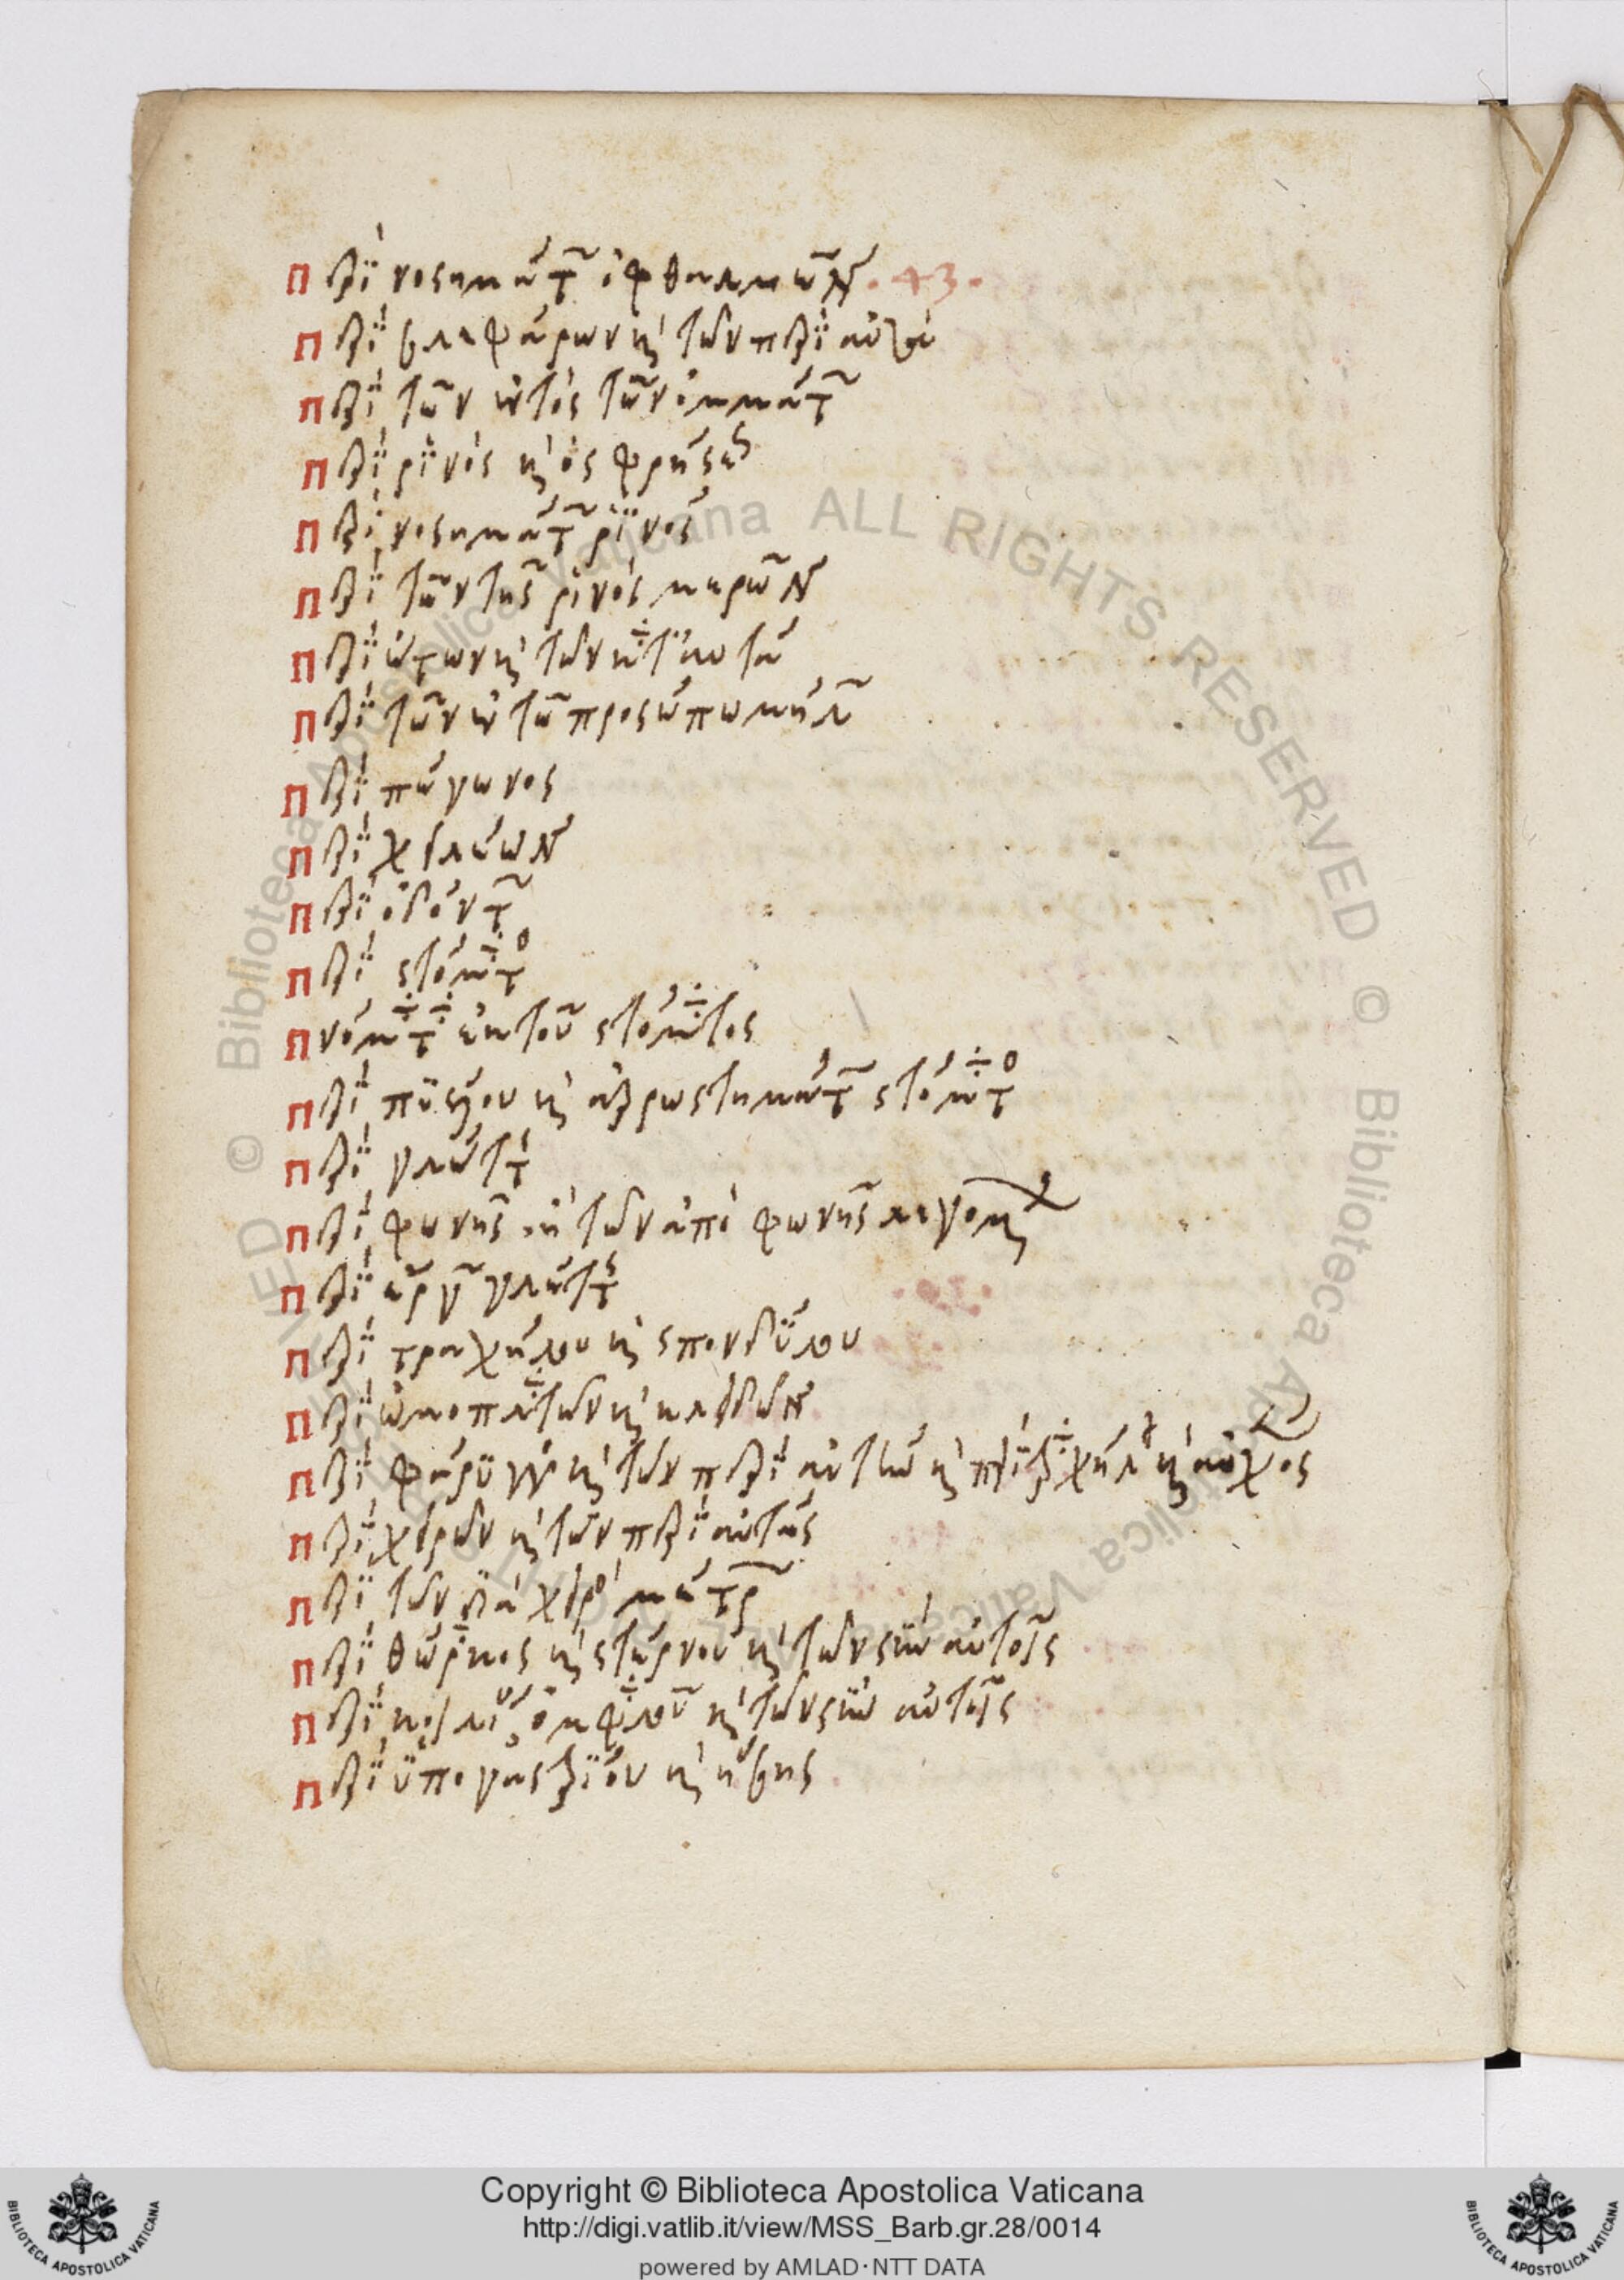 περὶ νοσημάτων ὀφθαλμῶν .43.
περὶ βλεφάρων καὶ τῶν περὶ αὐτὰ
περὶ τῶν ἐντὸς τῶν ὀμμάτων
περὶ ῥινὸς καὶ ὀσφρήσεως
περὶ νοσημάτων ῥινός
περὶ τῶν τῆς ῥινὸς μερῶν
περὶ ὤτων καὶ τῶν κατ' αὐτά
περὶ τῶν ἐν τῷ προσώπῳ μήλων
περὶ πώγωνος
περὶ χειλέων
περὶ ὀδόντων
περὶ στόματος
πνεύματα ἐκ τοῦ στόματος
περὶ πτυέλου καὶ ἀρρωστημάτων στόματος
περὶ γλώττης
περὶ φωνῆς καὶ τῶν ἀπὸ φωνῆς λεγομένων
περὶ ἔργων γλώττης
περὶ τραχήλου καὶ σπονδύλου
περὶ ὠμοπλατῶν καὶ κλειδῶν
περὶ φάρυγγος καὶ τῶν περὶ αὐτῶν καὶ περιτραχήλου καὶ αὐχένος
περὶ χειρῶν καὶ τῶν περὶ αὐτάς
περὶ τῶν διὰ χειρὸς μέτρων
περὶ θώρακος καὶ στέρνου καὶ τῶν σὺν αὐτοῖς
περὶ κοιλίας ὀμφαλοῦ καὶ τῶν σὺν αὐτοῖς
περὶ ὑπογαστρίου καὶ ἥβης
Copyright © Biblioteca Apostolica Vaticana
http://digi.vatlib.it/view/MSS_Barb.gr.28/0014
powered by AMLAD·NTT DATA
BIBLIOTECA APOSTOLICA VATICANA
BIBLIOTECA APOSTOLICA VATICANA